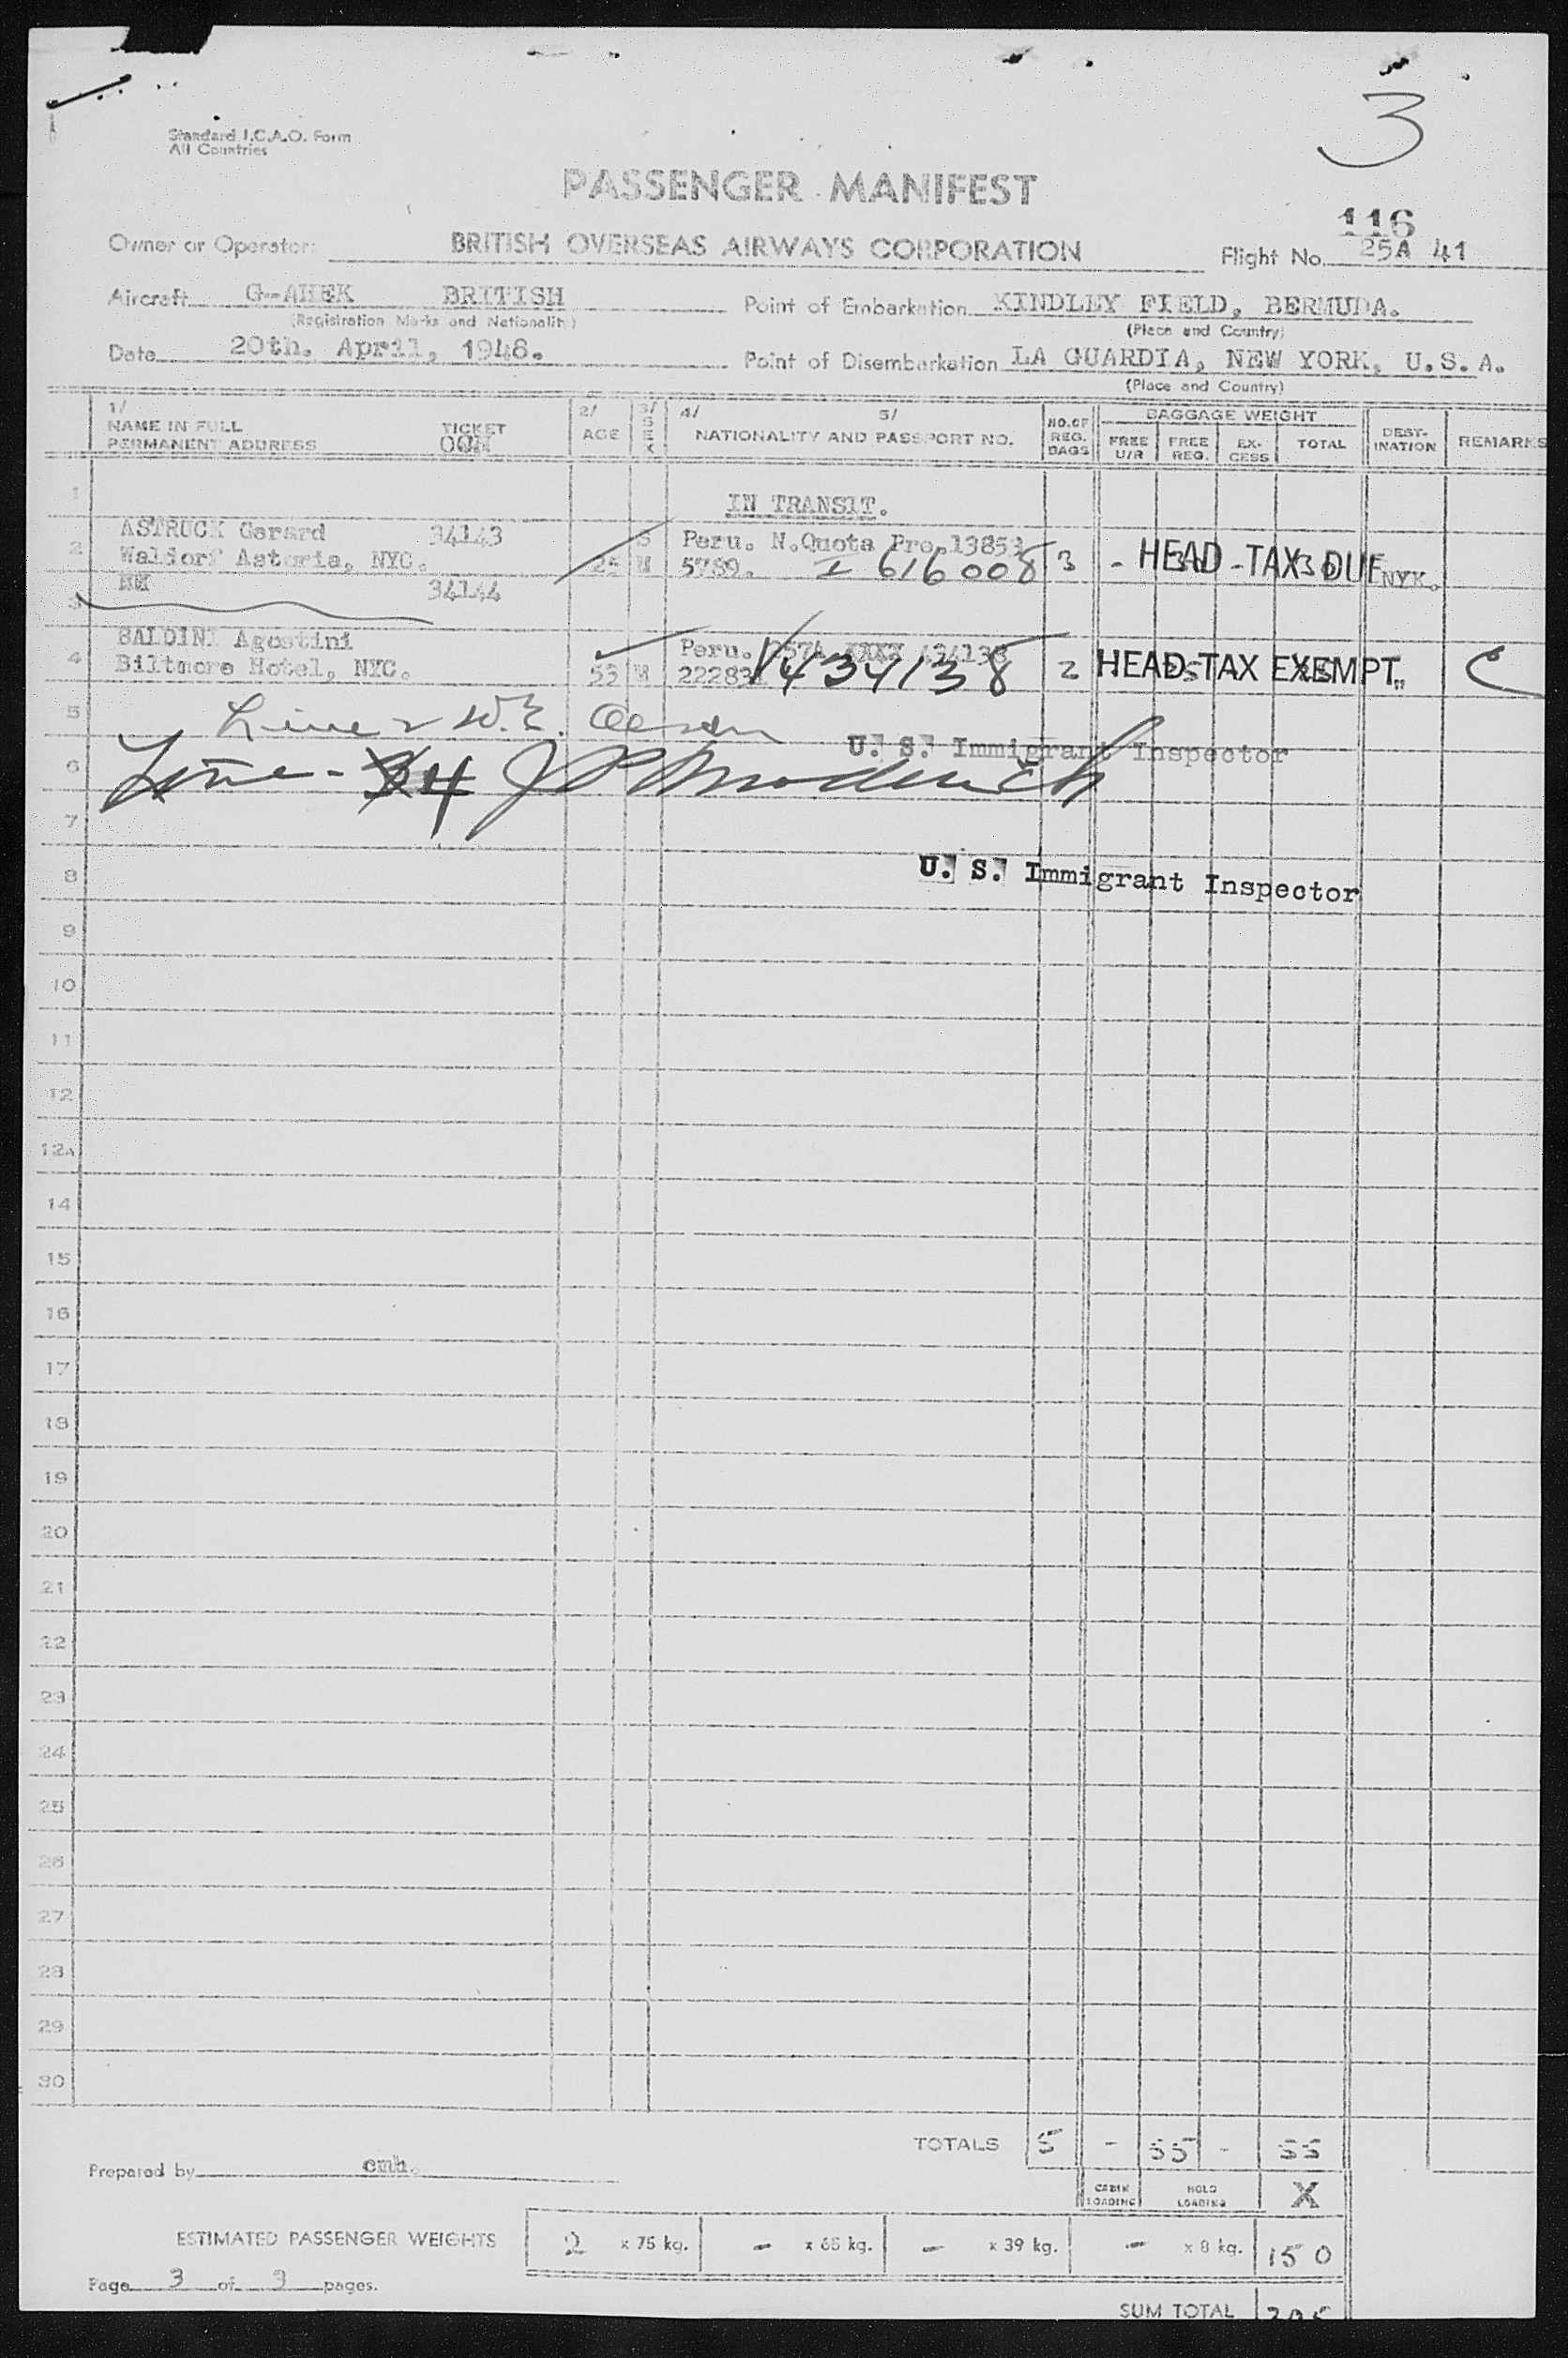 3
Standard I.C.A.O. Form
All Countries
PASSENGER MANIFEST
116
Owner or Operator: BRITISH OVERSEAS AIRWAYS CORPORATION Flight No. 25A 41
Aircraft G-AHEK BRITISH Point of Embarkation KINDLEY FIELD, BERMUDA.
(Registration Marks and Nationality) (Place and Country)
Date 20th. April, 1948. Point of Disembarkation LA GUARDIA, NEW YORK, U.S.A.
(Place and Country)
1/ NAME IN FULL PERMANENT ADDRESS TICKET 2/ AGE 3/ SEX 4/ 5/ NATIONALITY AND PASSPORT NO. NO. OF REG. BAGS BAGGAGE WEIGHT FREE U/R FREE REG. EXCESS TOTAL DESTINATION REMARKS
1 IN TRANSIT.
ASTRUCK Gerard 34143 S Peru. N.Quota Pre.13853
2 Waldorf Astoria, NYC. 25 M 5789. I 616008 3 - HEAD - TAX DUE NYK.
3 34144
BALDINI Agostini Peru. 434138
4 Biltmore Hotel, NYC. 53 M 434138 2 HEAD TAX EXEMPT C
5 Line 2 W.E.
U. S. Immigrant Inspector
6 Line - 4
7
8 U. S. Immigrant Inspector
9
10
11
12
12A
14
15
16
17
18
19
20
21
22
23
24
25
26
27
28
29
30
TOTALS 5 - 55 - 55
Prepared by cmh.
CABIN LOADING HOLD LOADING X
ESTIMATED PASSENGER WEIGHTS 2 x 75 kg. - x 65 kg. - x 39 kg. - x 8 kg. 150
Page 3 of 3 pages.
SUM TOTAL 205